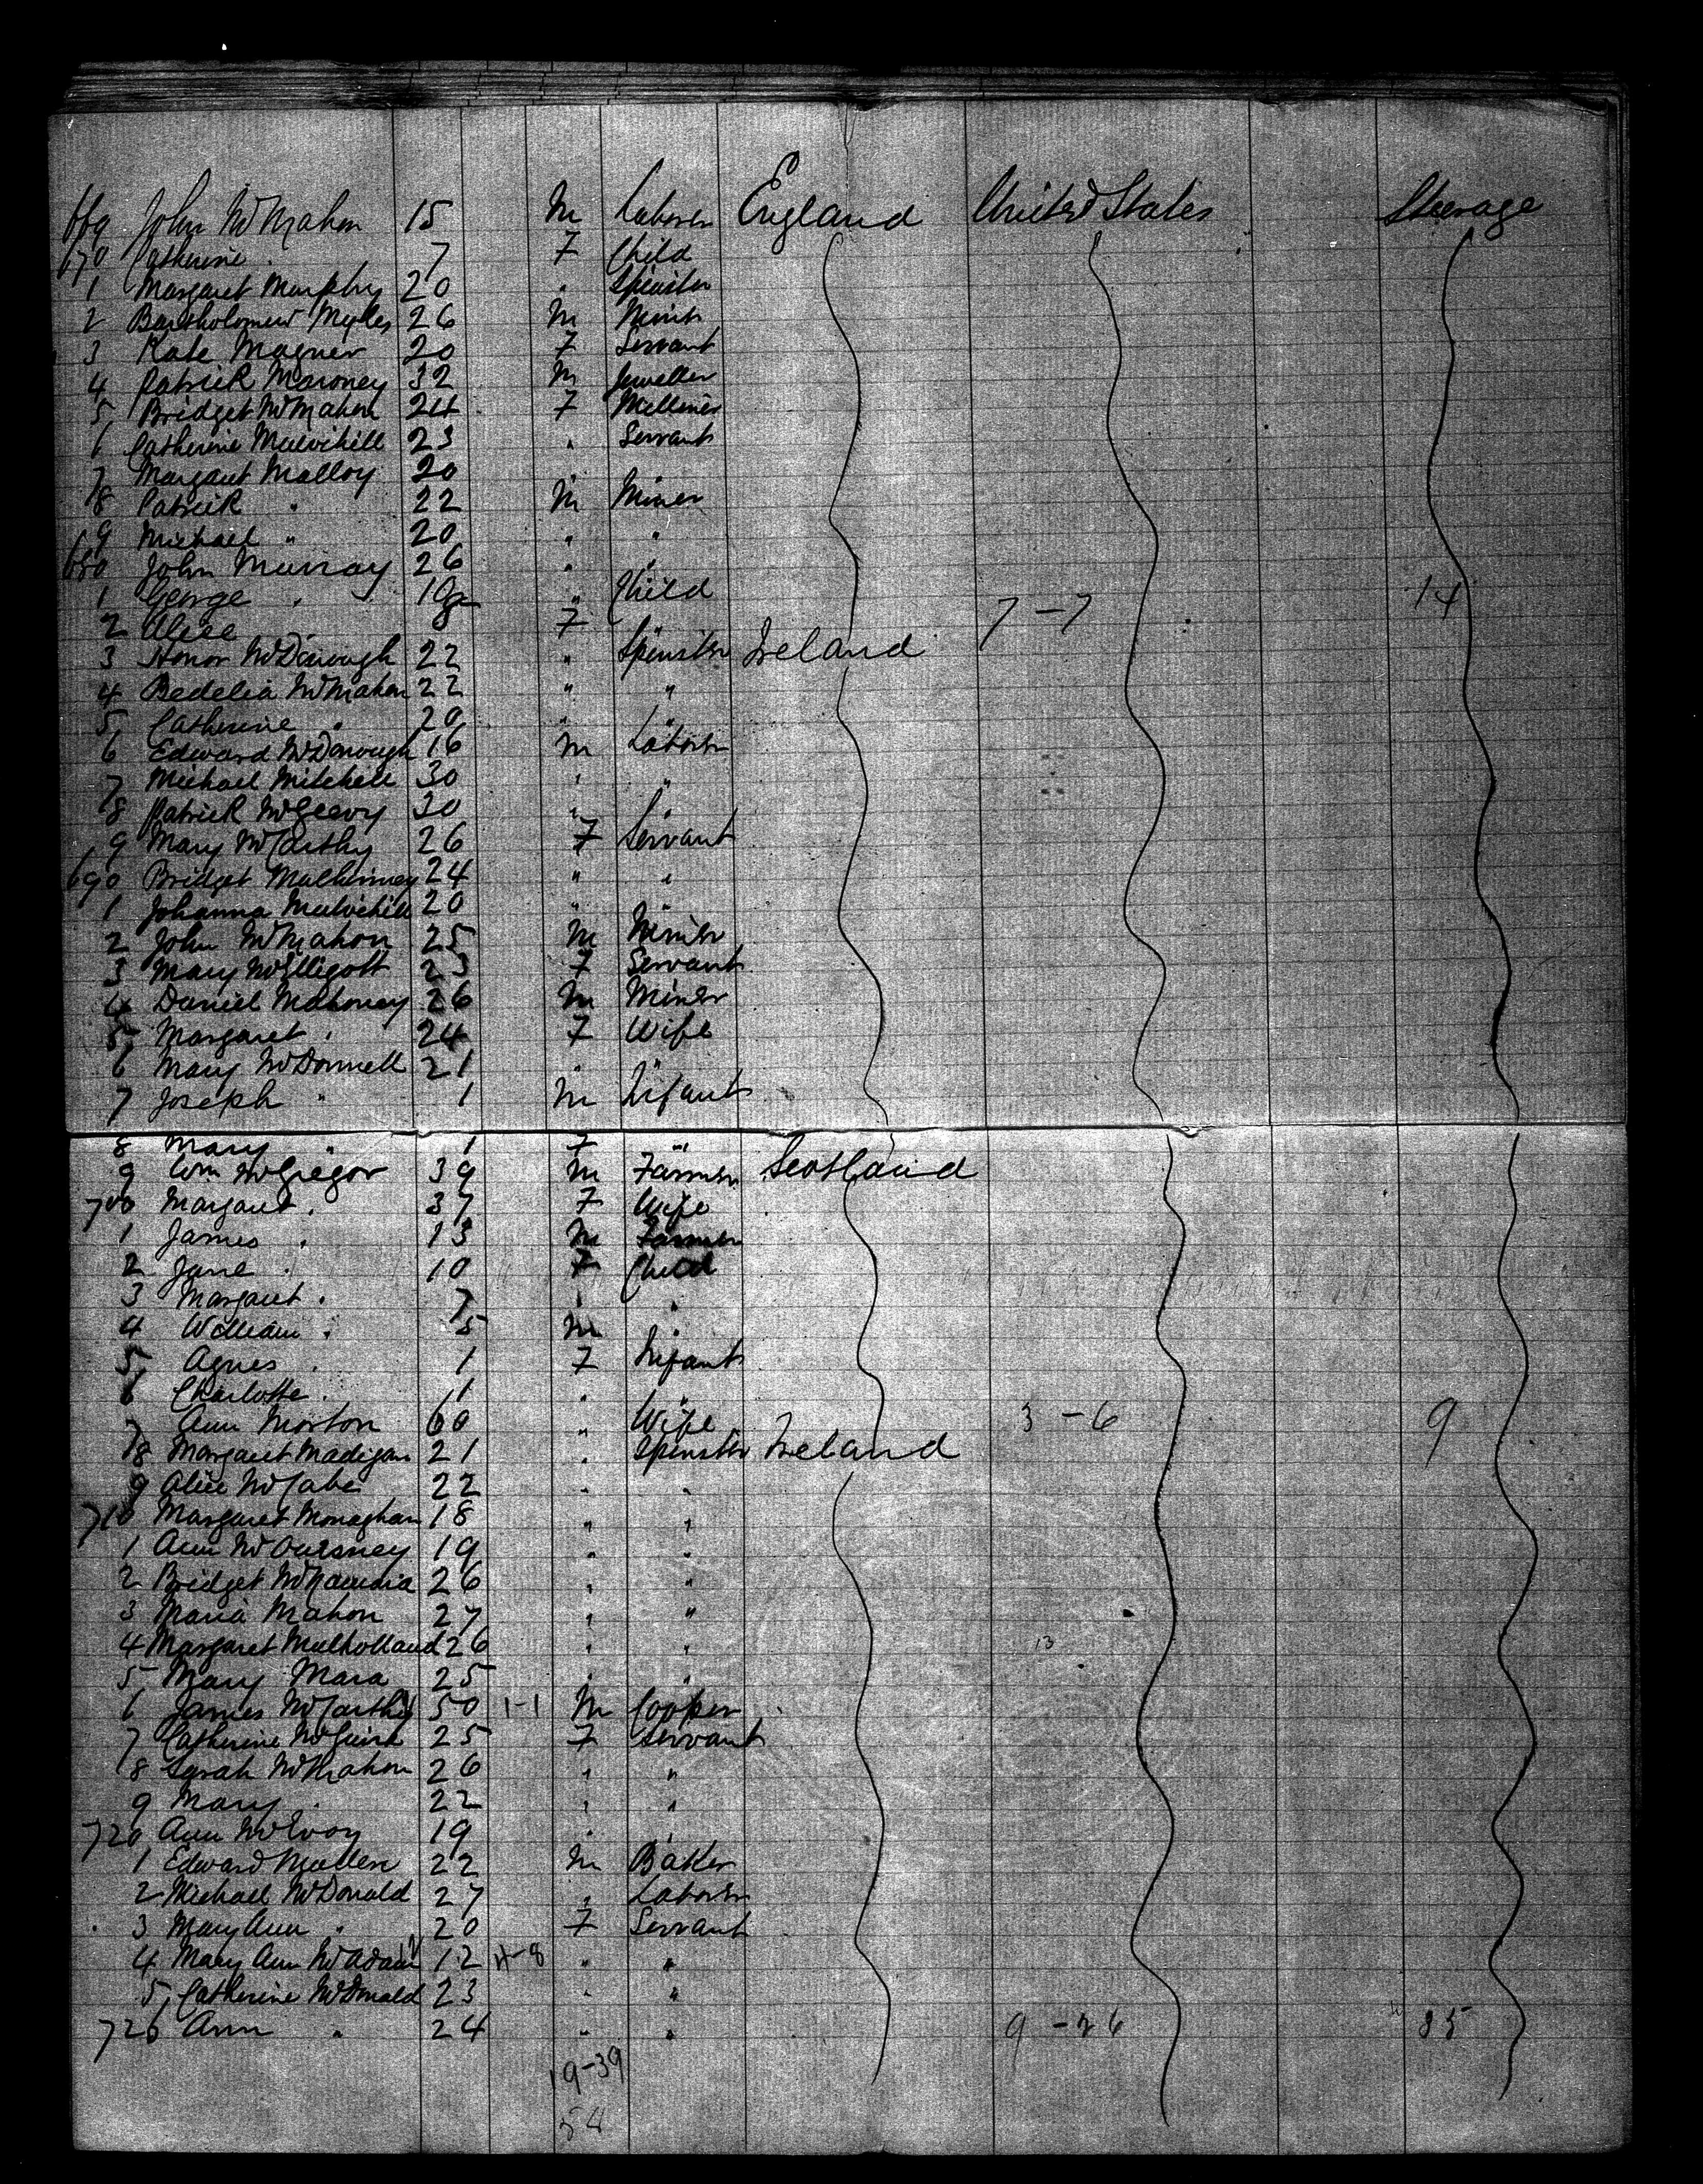 669 John McMahon 15 M Laborer England United States Steerage
670 Catherine " 7 F Child
1 Margaret Murphy 20 " Spinster
2 Bartholomew Myles 26 M Miner
3 Kate Magner 20 F Servant
4 Patrick Maroney 32 M Jeweller
5 Bridget McMahon 24 F Milliner
6 Catherine Mulvihill 23 " Servant
7 Margaret Malloy 20 " "
8 Patrick " 22 M Miner
9 Michael " 20 " "
680 John Murray 26 " "
1 George " " Child 7-7 14
2 Alice " F
3 Honor McDonough 22 " Spinster Ireland
4 Bedelia McMahon 22 " "
5 Catherine " 20 " "
6 Edward McDonough 16 M Laborer
7 Michael Mitchell 30 " "
8 Patrick McGeevy 30 " "
9 Mary McCarthy 26 F Servant
690 Bridget 24 " "
1 Johanna Mulvihill 20 " "
2 John McMahon 25 M Miner
3 Mary McElligott 23 F Servant
4 Daniel Mahoney 26 M Miner
5 Margaret " 24 F Wife
6 Mary McDonnell 21 "
7 Joseph " 1 M Infant
8 Mary " 1 F "
9 Wm McGregor 39 M Farmer Scotland
700 Margaret " 37 F Wife
1 James " 13 M Farmer
2 Jane " 10 F Child
3 Margaret " 7 " "
4 William " 5 M "
5 Agnes " 1 F Infant
6 Charlotte " 1 " "
7 Ann Morton 60 " Wife 3-6 9
8 Margaret Madigan 21 " Spinster Ireland
9 Alice McCabe 22 " "
710 Margaret Monaghan 18 " "
1 Ann 19 " "
2 Bridget 26 " "
3 Maria Mahon 27 " "
4 Margaret Mulholland 26 " " 13
5 Mary Mara 25 " "
6 James McCarthy 50 1-1 M Cooper
7 Catherine McGuirk 25 F Servant
8 Sarah McMahon 26 " "
9 Mary " 22 " "
720 Ann McEvoy 19 " "
1 Edward Mullen 22 M Baker
2 Michael McDonald 27 " Laborer
3 Mary Ann " 20 F Servant
4 Mary Ann McAdam 12 4-8 " "
5 Catherine McDonald 23 " "
726 Ann " 24 " " 9-26 35
19-39